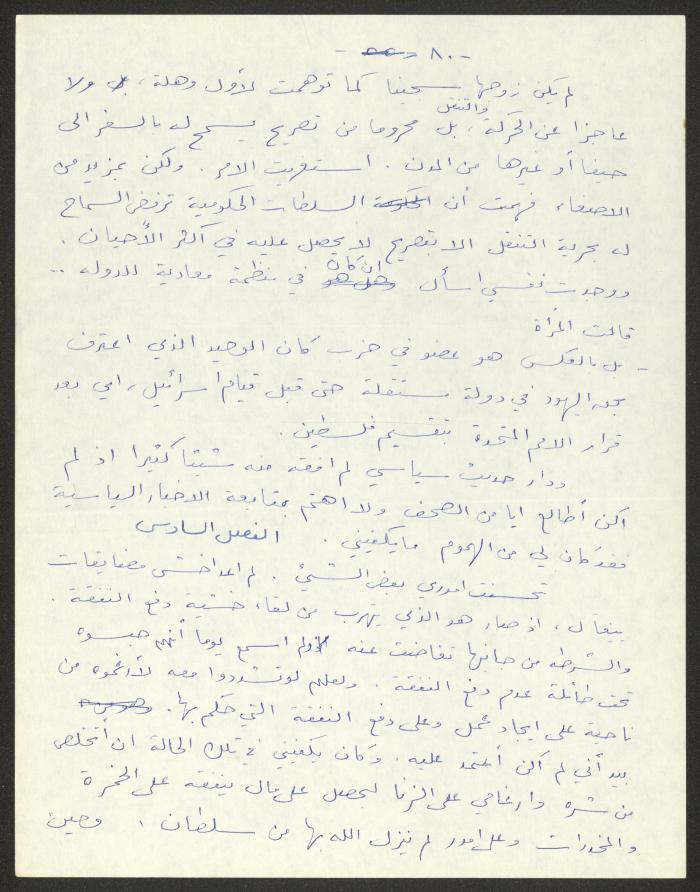 - ٨٠ -
لم يكن زوجها سجينا كما توهمت لأول وهلة، ولا
عاجزا عن الحركة والتنقل، بل محروما من تصريح يسمح له بالسفر الى
حيفا أو غيرها من المدن. استغربت الامر. ولكن بمزيد من
الاصغاء فهمت أن الحكومة السلطات الحكومية ترفض السماح
له بحرية التنقل الا بتصريح لا يحصل عليه في أكثر الأحيان.
ووجدت نفسي اسأل وهل هو ان كان في منظمة معادية للدوله ..
قالت المرأة
- بل بالعكس هو عضو في حزب كان الوحيد الذي اعترف
بحق اليهود في دولة مستقلة حتى قبل قيام اسرائيل، اي بعد
قرار الامم المتحدة بتقسيم فلسطين.
ودار حديث سياسي لم افقه منه شيئا كثيرا اذ لم
اكن أطالع ايا من الصحف ولا اهتم بمتابعة الاخبار السياسية
فقد كان لي من الهموم ما يكفيني.
الفصل السادس
تحسنت اموري بعض الشيئ. لم اعد اخشى مضايقات
يتهرب من لقاء خشية دفع النفقة. بيغال، اذ صار هو الذي
والشرطه من جانبها تغاضت عنه ولم اسمع يوما أنهم حبسوه
تحت طائلة عدم دفع النفقة. ولعلهم لو تشددوا معه لأرغموه من
ناحية على ايجاد عمل وعلى دفع النفقة التي حكم بها.
بيد أني لم اكن أعتمد عليه. وكان يكفيني في تلك الحالة ان أتخلص
من شره وارغامي على الزنا ليحصل على مال ينفقه على الخمرة
والمخدرات وعلى امور لم ينزل الله بها من سلطان. وحين